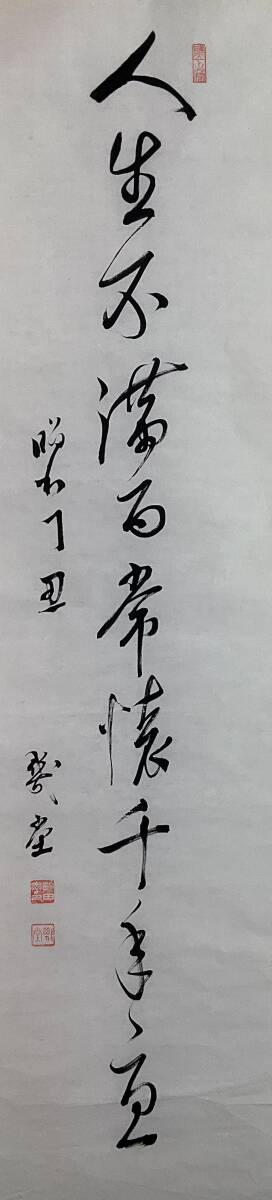 人生不満百常懐千歳憂
昭和丁丑
堂